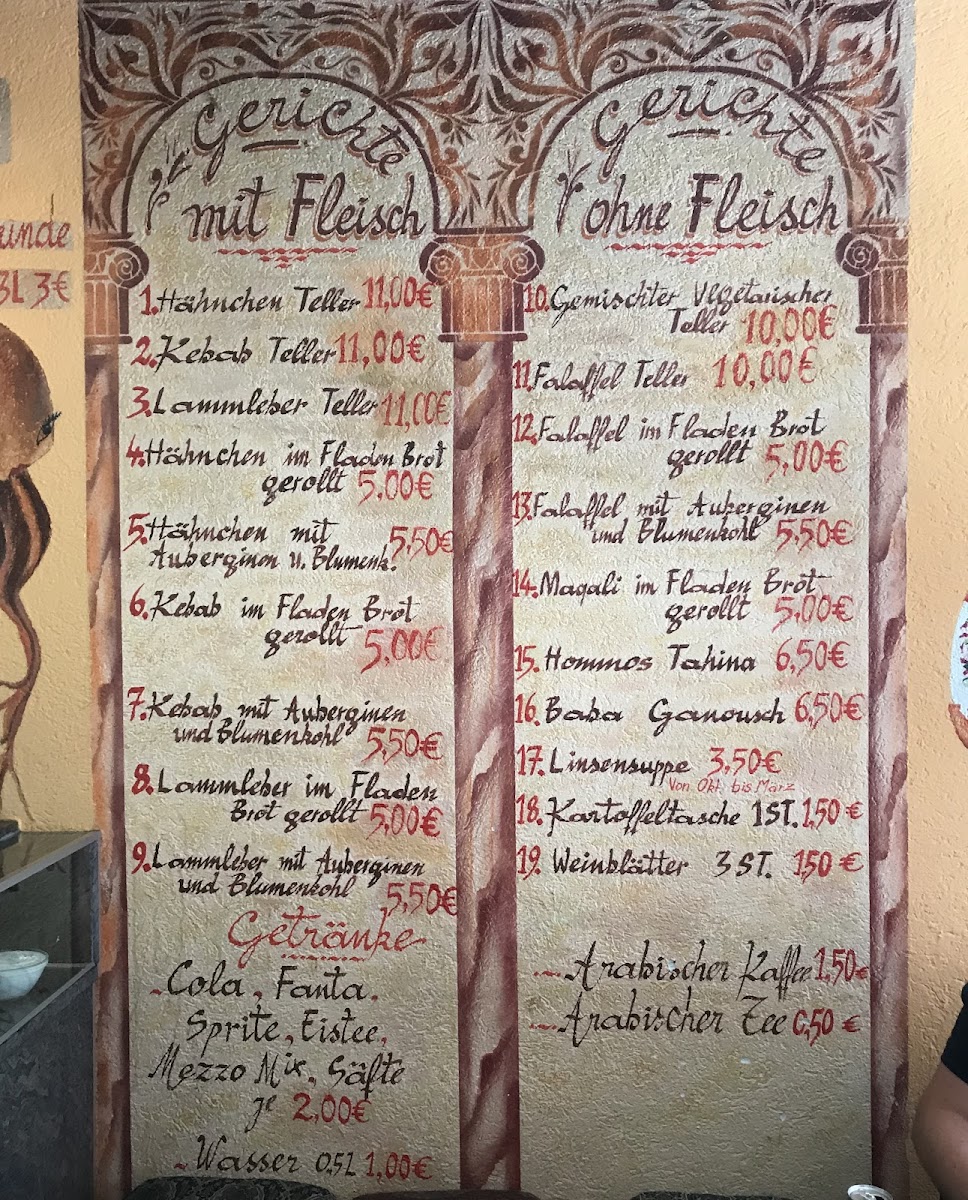 unde
3L 3€
Gerichte
mit Fleisch
1. Hähnchen Teller 11,00€
2. Kebab Teller 11,00€
3. Lammleber Teller 11,00€
4. Hähnchen im Fladen Brot
gerollt 5,00€
5. Hähnchen mit 5,50€
Auberginen u. Blumenk.
6. Kebab im Fladen Brot
gerollt 5,00€
7. Kebab mit Auberginen
und Blumenkohl 5,50€
8. Lammleber im Fladen
Brot gerollt 5,00€
9. Lammleber mit Auberginen
und Blumenkohl 5,50€
Getränke
Cola, Fanta,
Sprite, Eistee,
Mezzo Mix, Säfte
je 2,00€
Wasser 0,5L 1,00€
Gerichte
ohne Fleisch
10. Gemischter Vegetarischer
Teller 10,00€
11. Falaffel Teller 10,00€
12. Falaffel im Fladen Brot
gerollt 5,00€
13. Falaffel mit Auberginen
und Blumenkohl 5,50€
14. Maqali im Fladen Brot
gerollt 5,00€
15. Hommos Tahina 6,50€
16. Baba Ganousch 6,50€
17. Linsensuppe 3,50€
Von Okt. bis März
18. Kartoffeltasche 1ST. 1,50 €
19. Weinblätter 3 ST. 1,50 €
Arabischer Kaffee 1,50€
Arabischer Tee 0,50 €